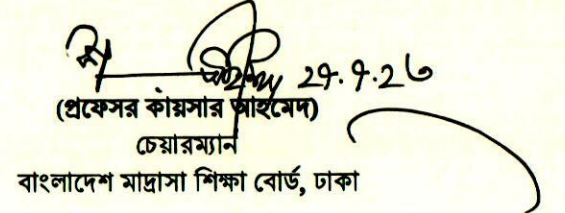 (প্রফেসর কায়সার আহমেদ)
চেয়ারম্যান
বাংলাদেশ মাদ্রাসা শিক্ষা বোর্ড, ঢাকা